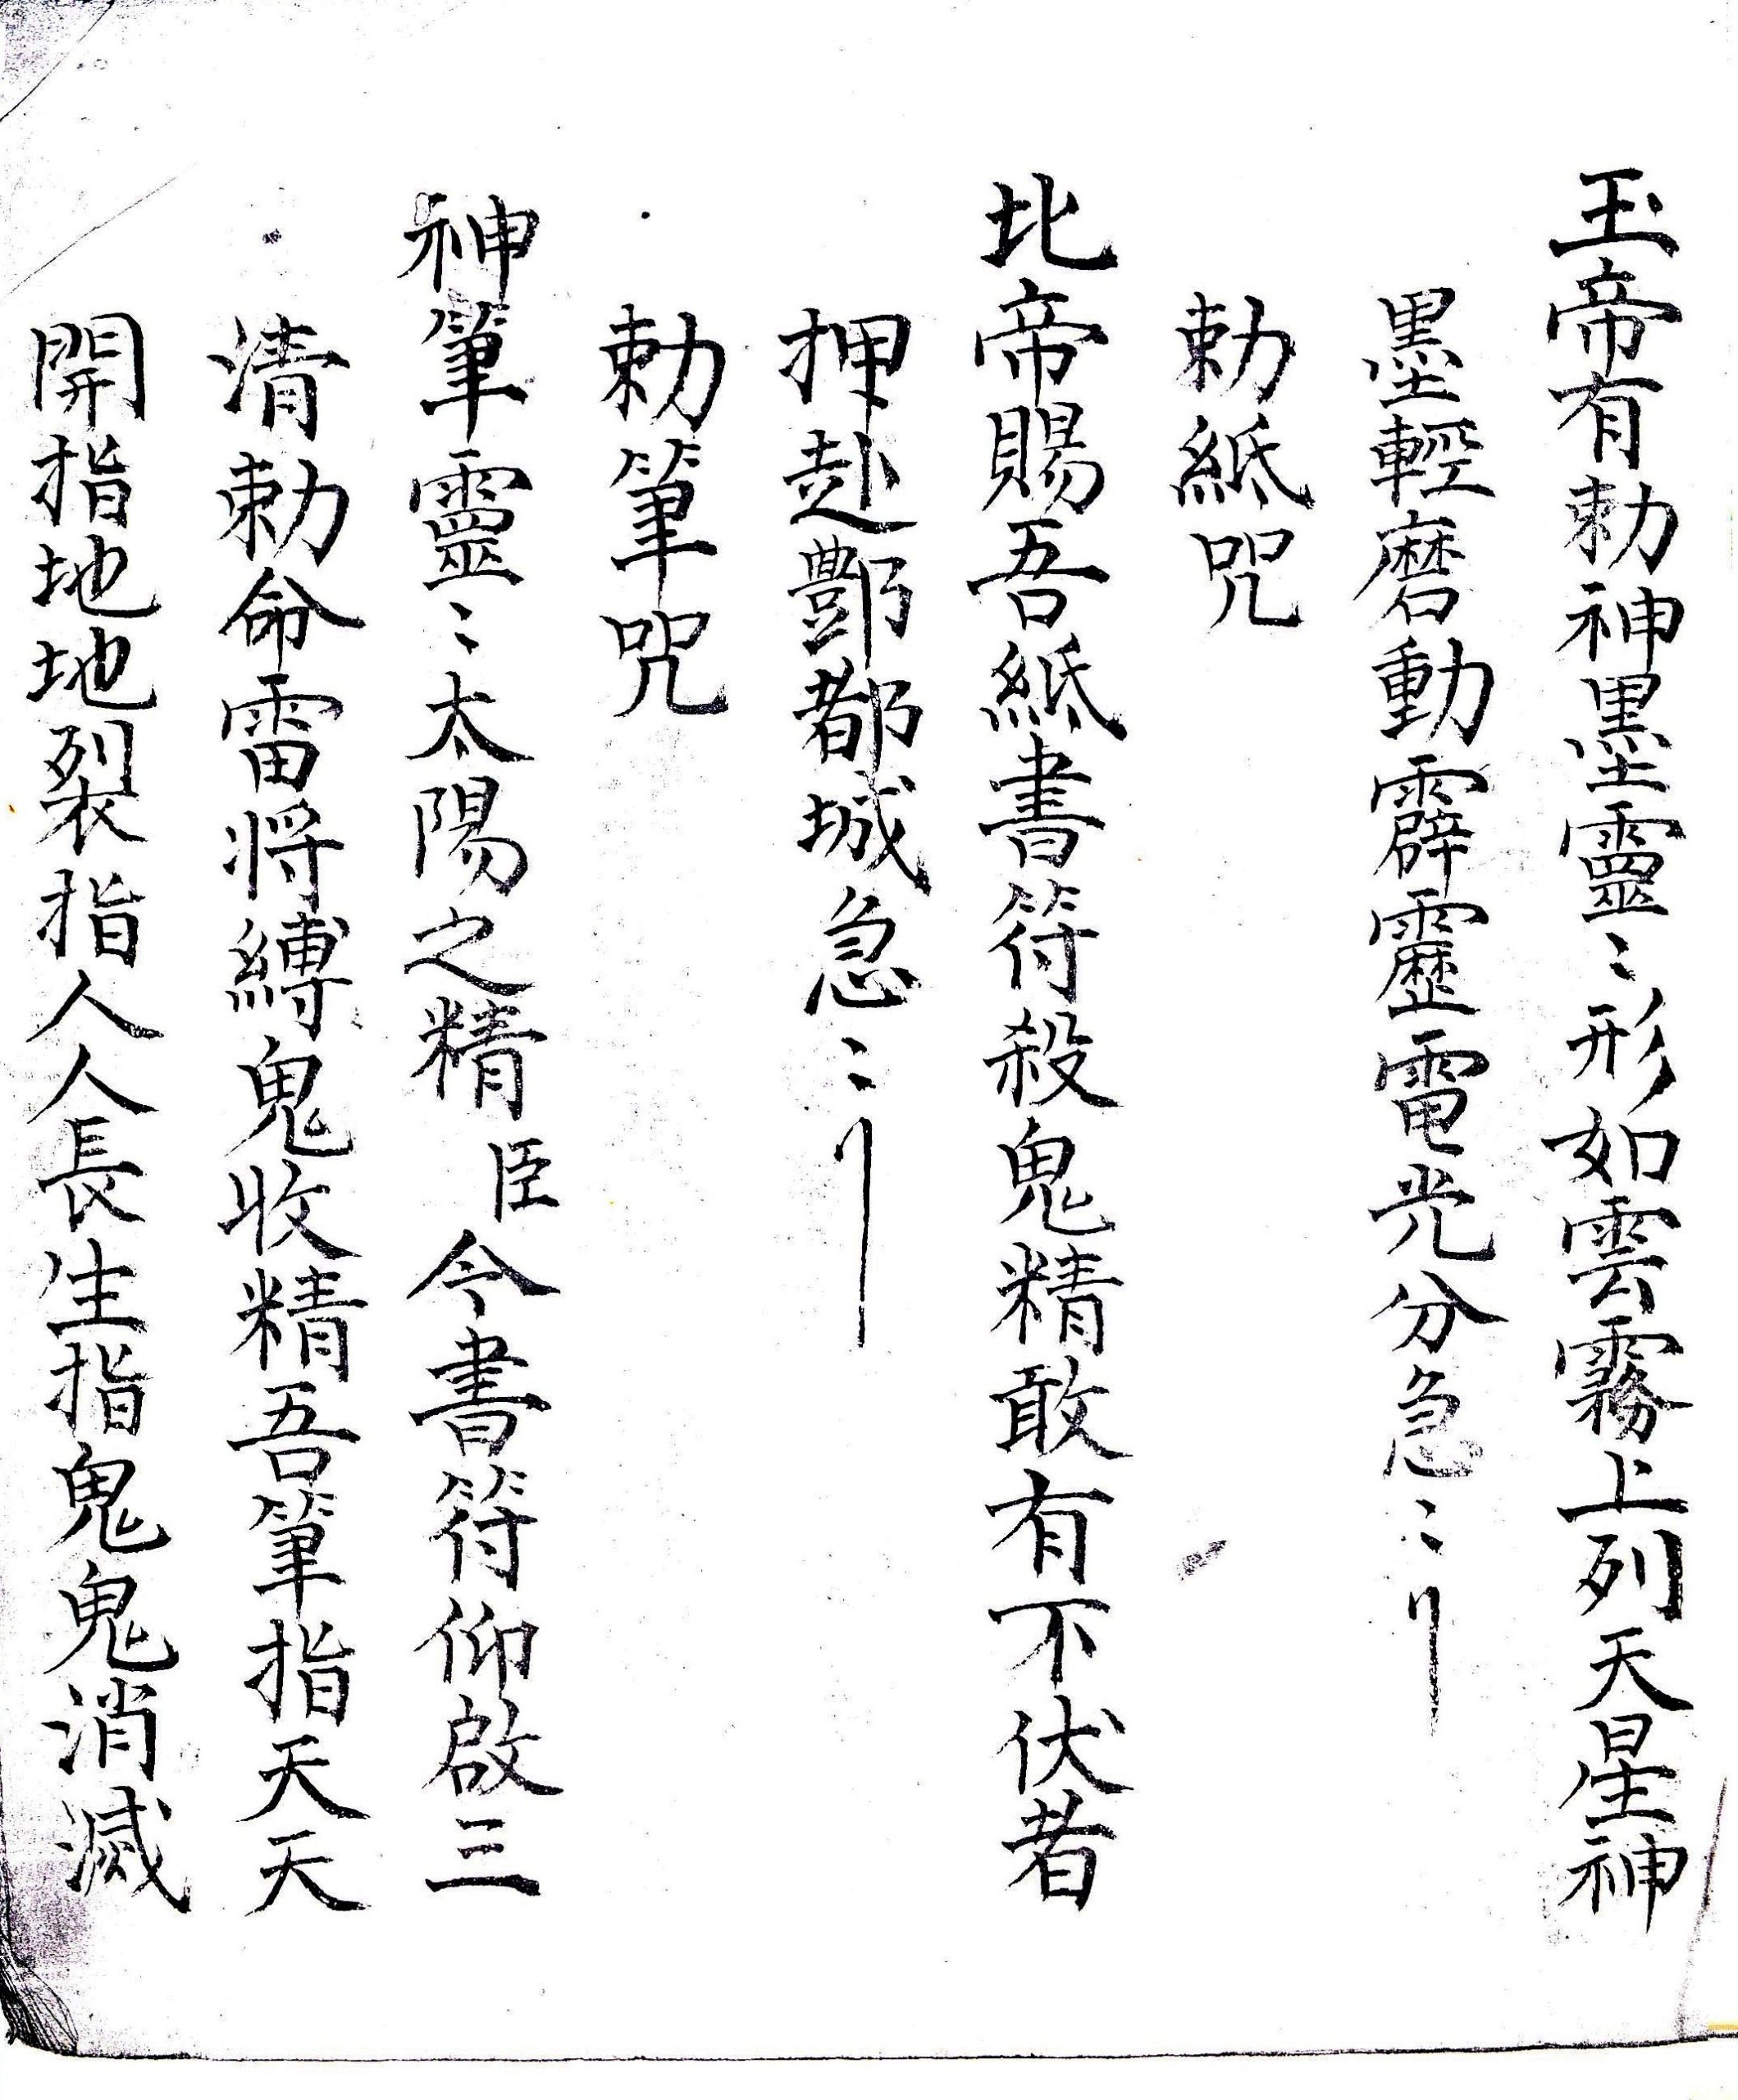 玉帝有勅神墨靈〻形如雲霧上列天星神
墨輕磨動霹靂電光分急〻刂
勅紙咒
北帝賜吾紙書符殺鬼精敢有不伏者
押赴酆都城急〻刂
勅筆咒
神筆靈〻太陽之精臣今書符仰啟三
清勅命雷將縛鬼收精吾筆指天天
開指地地裂指人人長生指鬼鬼消滅